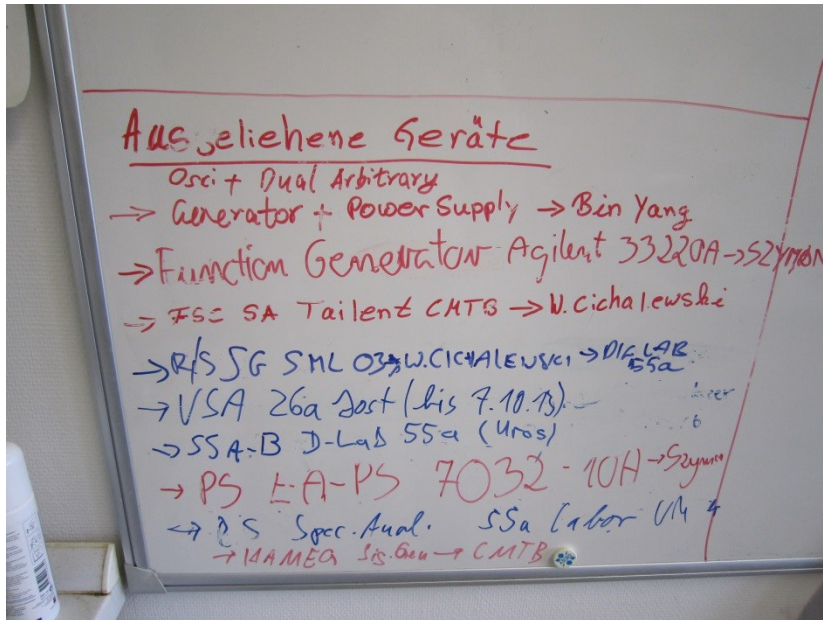 Ausgeliehene Geräte
Osci + Dual Arbitrary
→ Generator + Power Supply → Bin Yang
→ Function Generator Agilent 33220A → SZYMON
→ FSE SA Tailent CMTB → W. Cichalewski
→ R/S SG SML 03 → W. CICHALEWSKI → DIG LAB 55a
→ VSA 26a Jost (bis 7.10.13)
→ SSA-B D-LaB 55a (Uros)
→ PS EA-PS 7032-10A → Szymon
→ RS Spec. Anal. 55a Labor
→ HAMEG Sig. Gen → CMTB